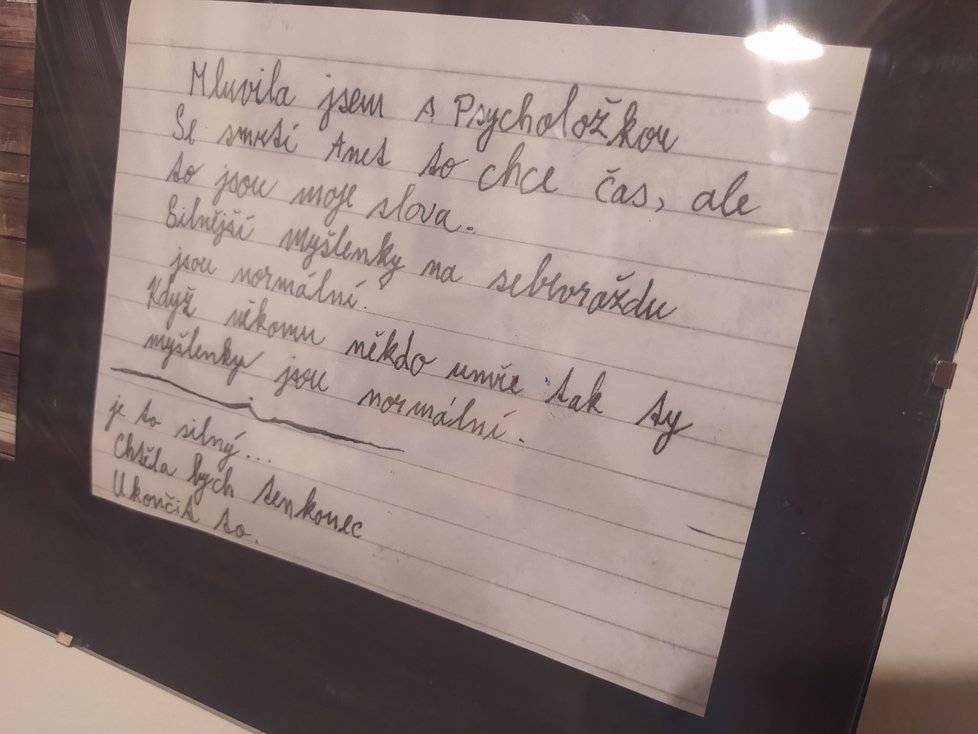 Mluvila jsem s Psycholožkou
Se smrtí Anet to chce čas, ale
to jsou moje slova.
Silnější myšlenky na sebvraždu
jsou normální.
Když někomu někdo umře tak ty
myšlenky jsou normální.
je to silný...
Chtěla bych tenkonec
Ukončit to.